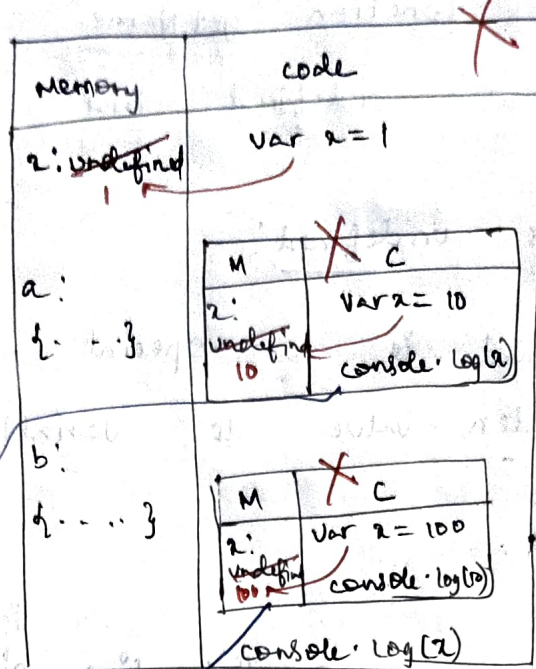 Memory
code
x: undefined
1
var x = 1
a:
{ . . . }
M
C
x:
undefined
10
var x = 10
console.log(x)
b:
{ . . . . }
M
C
x:
undefined
100
var x = 100
console.log(x)
console.log(x)